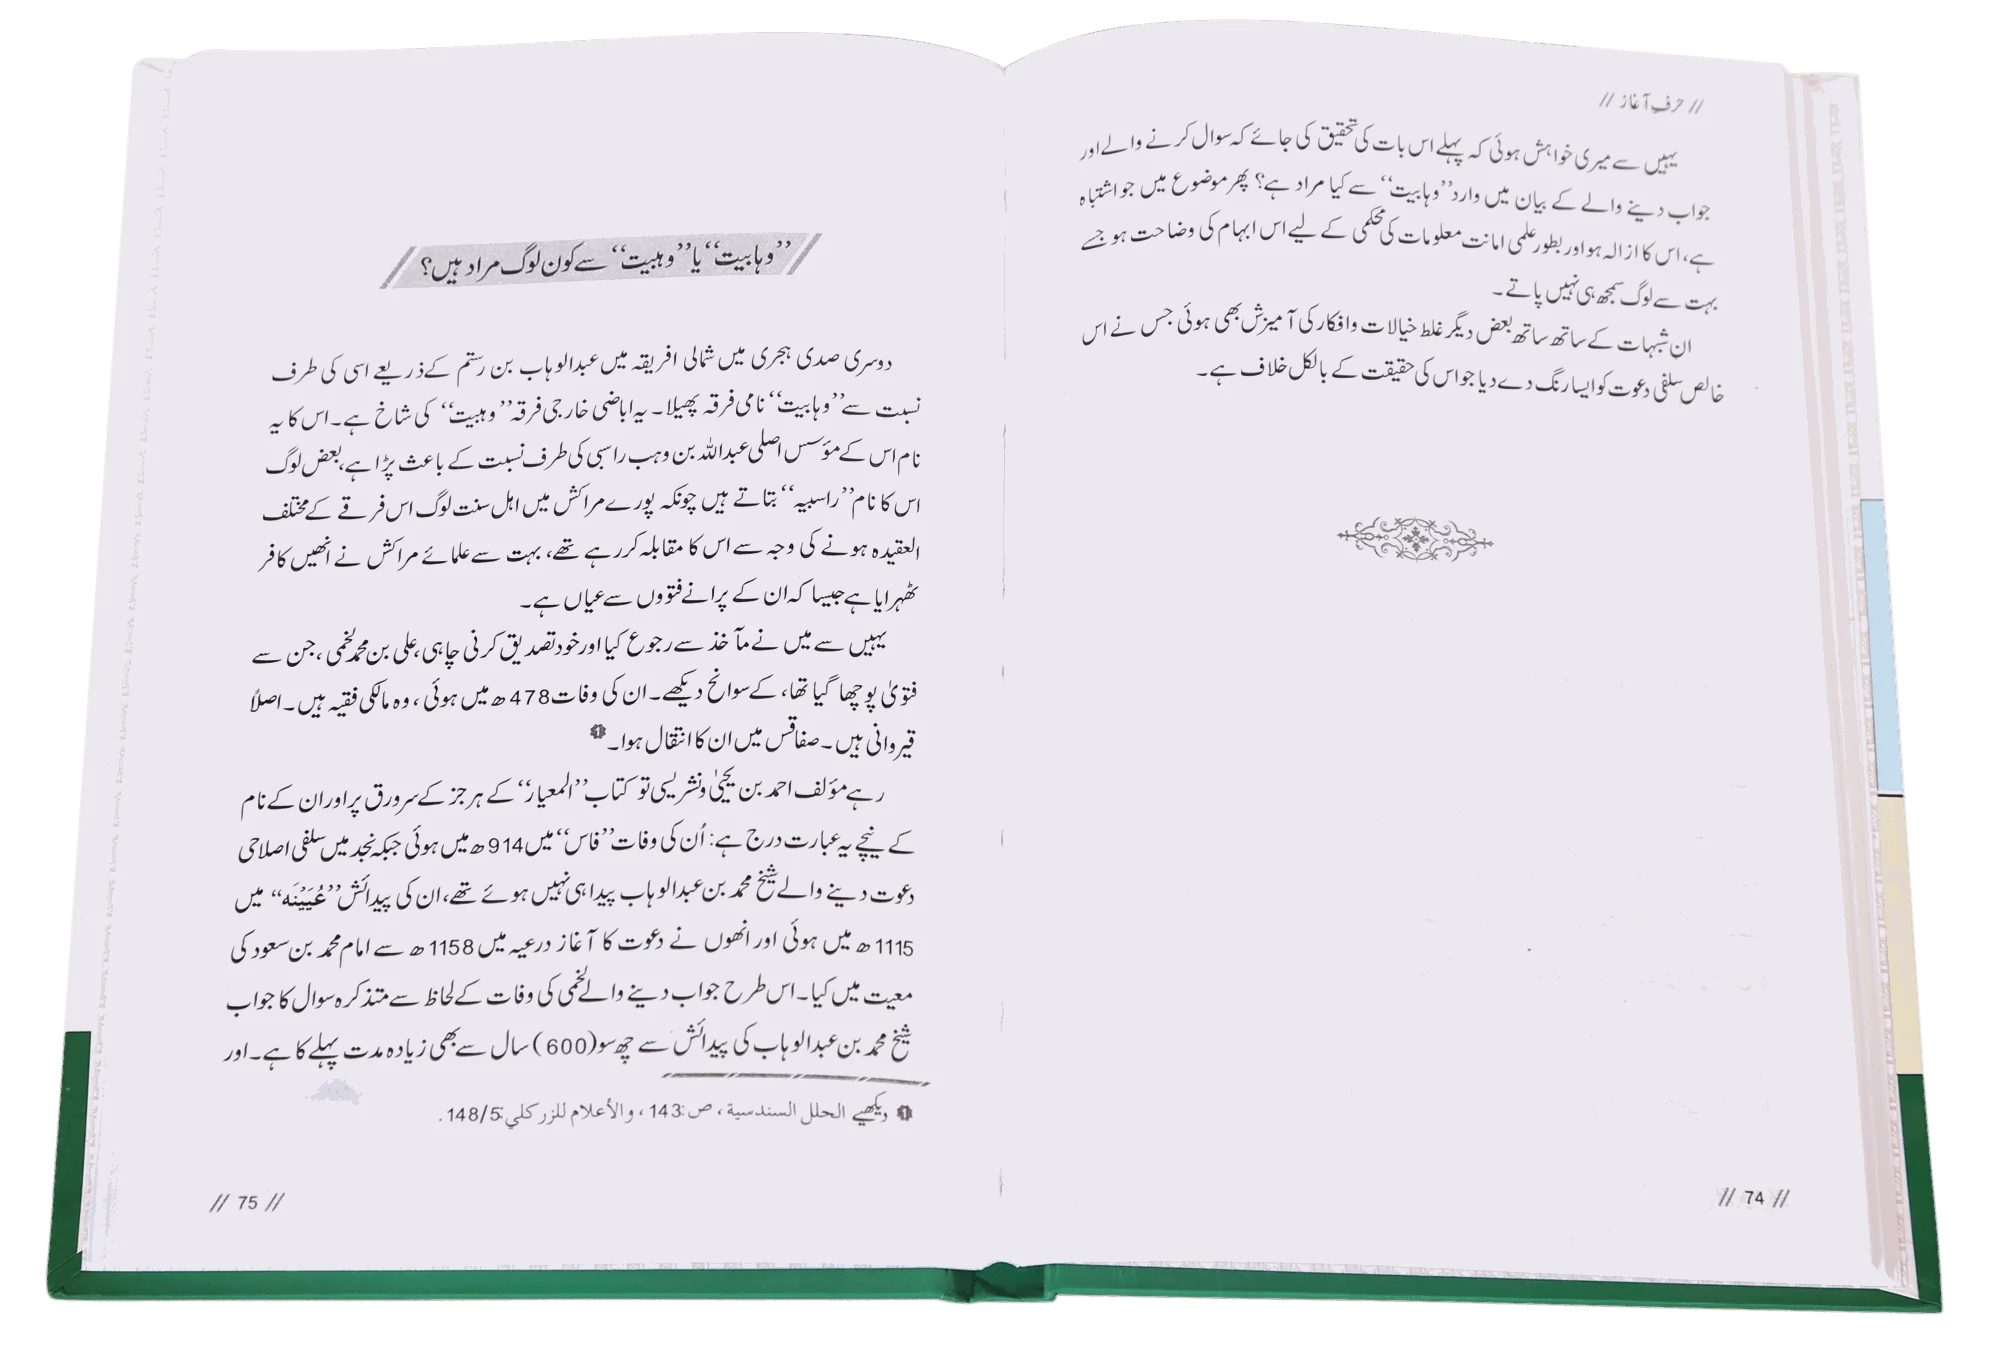 // حرفِ آغاز //
یہیں سے میری خواہش ہوئی کہ پہلے اس بات کی تحقیق کی جائے کہ سوال کرنے والے اور
جواب دینے والے کے بیان میں وارد ’’وہابیت‘‘ سے کیا مراد ہے؟ پھر موضوع میں جو اشتباہ
ہے، اس کا ازالہ ہو اور بطور علمی امانت معلومات کی محکمی کے لیے اس ابہام کی وضاحت ہو جسے
بہت سے لوگ سمجھ ہی نہیں پاتے۔
ان شبہات کے ساتھ ساتھ بعض دیگر غلط خیالات و افکار کی آمیزش بھی ہوئی جس نے اس
خالص سلفی دعوت کو ایسا رنگ دے دیا جو اس کی حقیقت کے بالکل خلاف ہے۔
// 74 //
’’وہابیت‘‘ یا ’’وہبیت‘‘ سے کون لوگ مراد ہیں؟
دوسری صدی ہجری میں شمالی افریقہ میں عبدالوہاب بن رستم کے ذریعے اسی کی طرف
نسبت سے ’’وہابیت‘‘ نامی فرقہ پھیلا۔ یہ اباضی خارجی فرقہ ’’وہبیت‘‘ کی شاخ ہے۔ اس کا یہ
نام اس کے مؤسس اصلی عبداللہ بن وہب راسبی کی طرف نسبت کے باعث پڑا ہے، بعض لوگ
اس کا نام ’’راسبیہ‘‘ بتاتے ہیں چونکہ پورے مراکش میں اہل سنت لوگ اس فرقے کے مختلف
العقیدہ ہونے کی وجہ سے اس کا مقابلہ کر رہے تھے، بہت سے علمائے مراکش نے انھیں کافر
ٹھہرایا ہے جیسا کہ ان کے پرانے فتووں سے عیاں ہے۔
یہیں سے میں نے مآخذ سے رجوع کیا اور خود تصدیق کرنی چاہی، علی بن محمد لخمی، جن سے
فتویٰ پوچھا گیا تھا، کے سوانح دیکھے۔ ان کی وفات 478ھ میں ہوئی، وہ مالکی فقیہ ہیں۔ اصلاً
قیروانی ہیں۔ صفاقس میں ان کا انتقال ہوا۔ 1
رہے مؤلف احمد بن یحییٰ ونشریسی تو کتاب ’’المعیار‘‘ کے ہر جز کے سرورق پر اور ان کے نام
کے نیچے یہ عبارت درج ہے: اُن کی وفات ’’فاس‘‘ میں 914ھ میں ہوئی جبکہ نجد میں سلفی اصلاحی
دعوت دینے والے شیخ محمد بن عبدالوہاب پیدا ہی نہیں ہوئے تھے، ان کی پیدائش ’’عُيَيْنَه‘‘ میں
1115ھ میں ہوئی اور انھوں نے دعوت کا آغاز درعیہ میں 1158ھ سے امام محمد بن سعود کی
معیت میں کیا۔ اس طرح جواب دینے والے لخمی کی وفات کے لحاظ سے متذکرہ سوال کا جواب
شیخ محمد بن عبدالوہاب کی پیدائش سے چھ سو (600) سال سے بھی زیادہ مدت پہلے کا ہے۔ اور
1 دیکھیے الحلل السندسية، ص:143، والأعلام للزركلي:148/5.
// 75 //